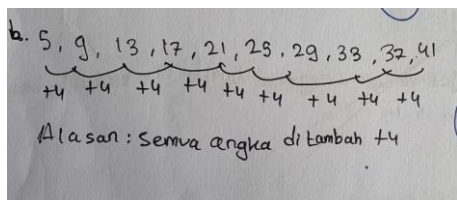 b. 5, 9, 13, 17, 21, 25, 29, 33, 37, 41
+4 +4 +4 +4 +4 +4 +4 +4 +4
Alasan : Semua angka ditambah +4